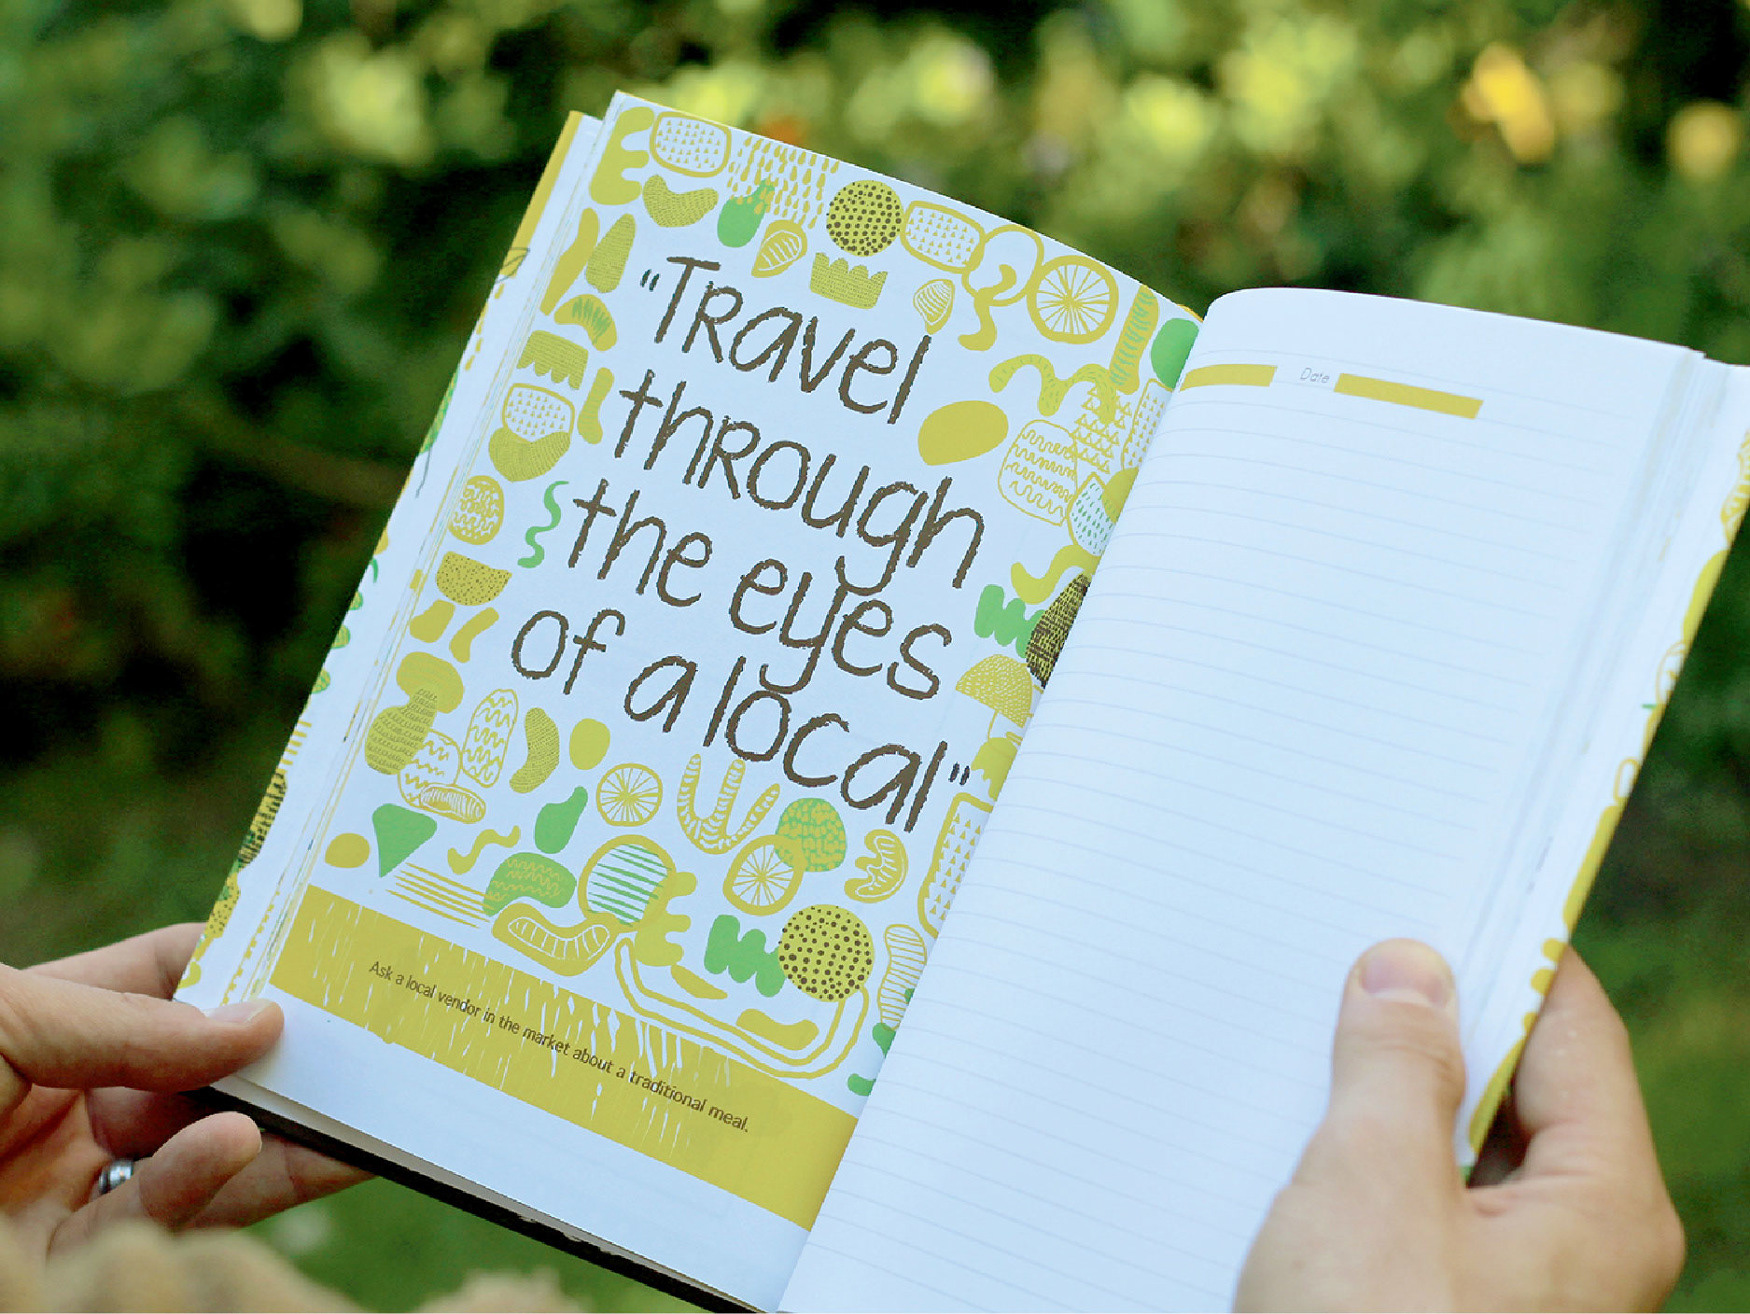 "Travel
through
the eyes
of a local"
Ask a local vendor in the market about a traditional meal.
Date